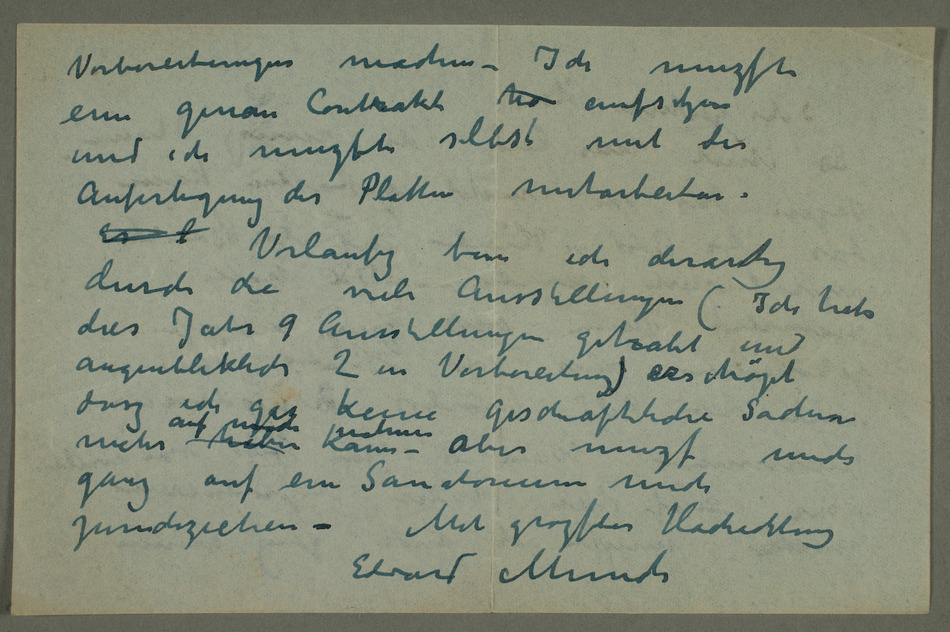 Vorbereitungen machen – Ich muszte
ein genau Contrakt ha aufsetzen
und ich muszte selbst mit der
Anfertigung der Platten mitarbeiten.
Es
Vorlaufig bin ich derartig
durch die viele Ausstellungen (Ich hab
dies Jahr 9 Ausstellungen gehabt und
augenblicklich 2 in Vorbereitung) erschöpft
dasz ich gar keine geschäftliche Sachen
auf mich nehmen
mehr haben kann – aber musz mich
ganz auf ein Sanatorium mich
zurückziehen – Mit groszter Hochachtung
Edvard Munch